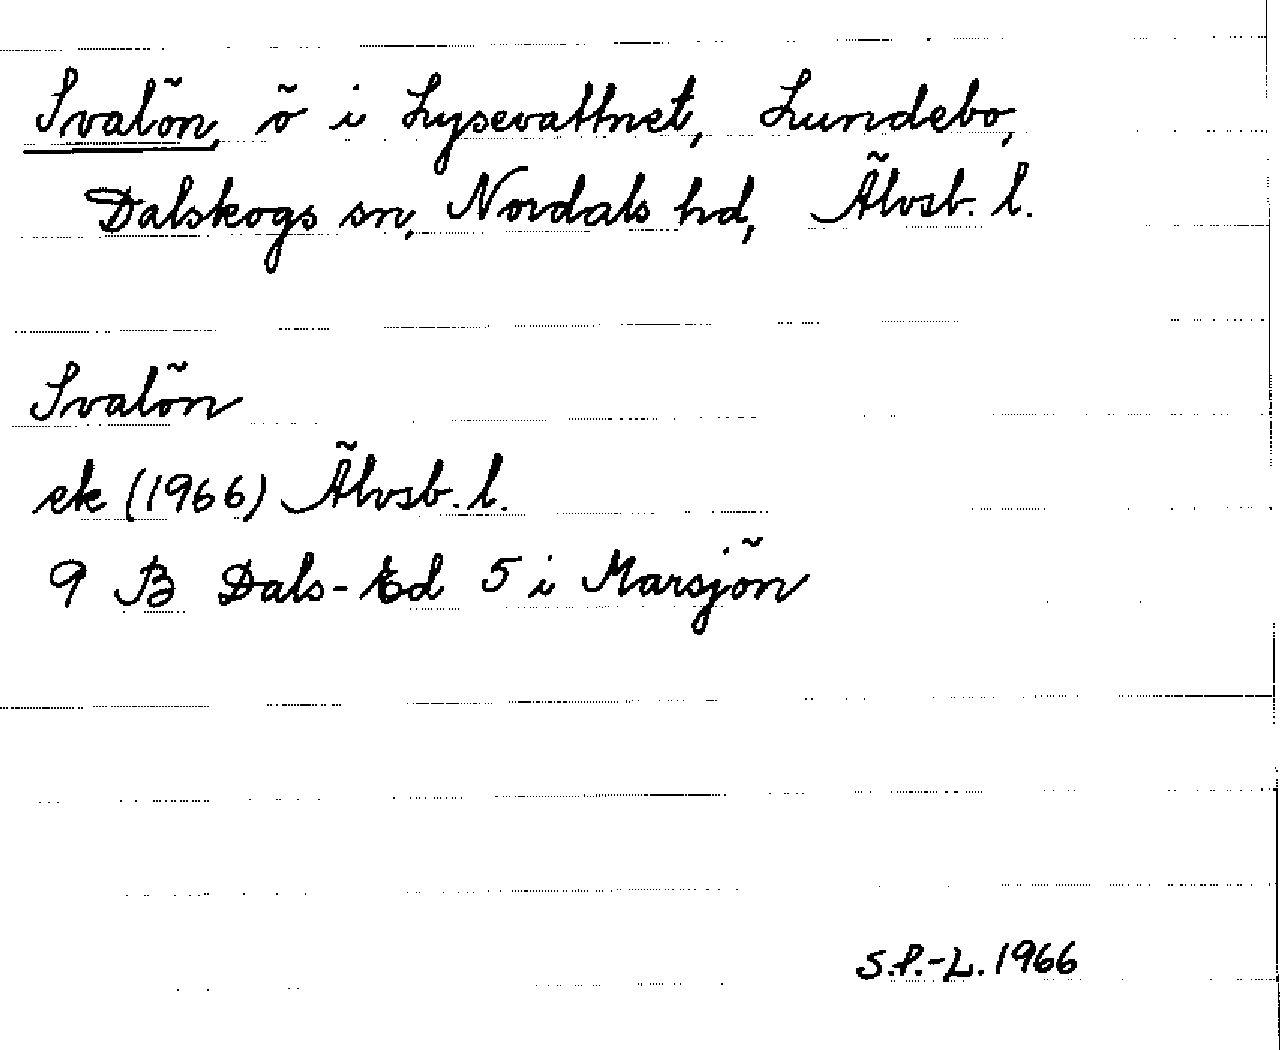 Svalön, ö i Lysevattnet, Lundebo,
Dalskogs sn, Nordals hd, Älvsb. l.
Svalön
ek (1966) Älvsb. l.
9 B Dals-Ed 5 i Marsjön
S.P.-L. 1966